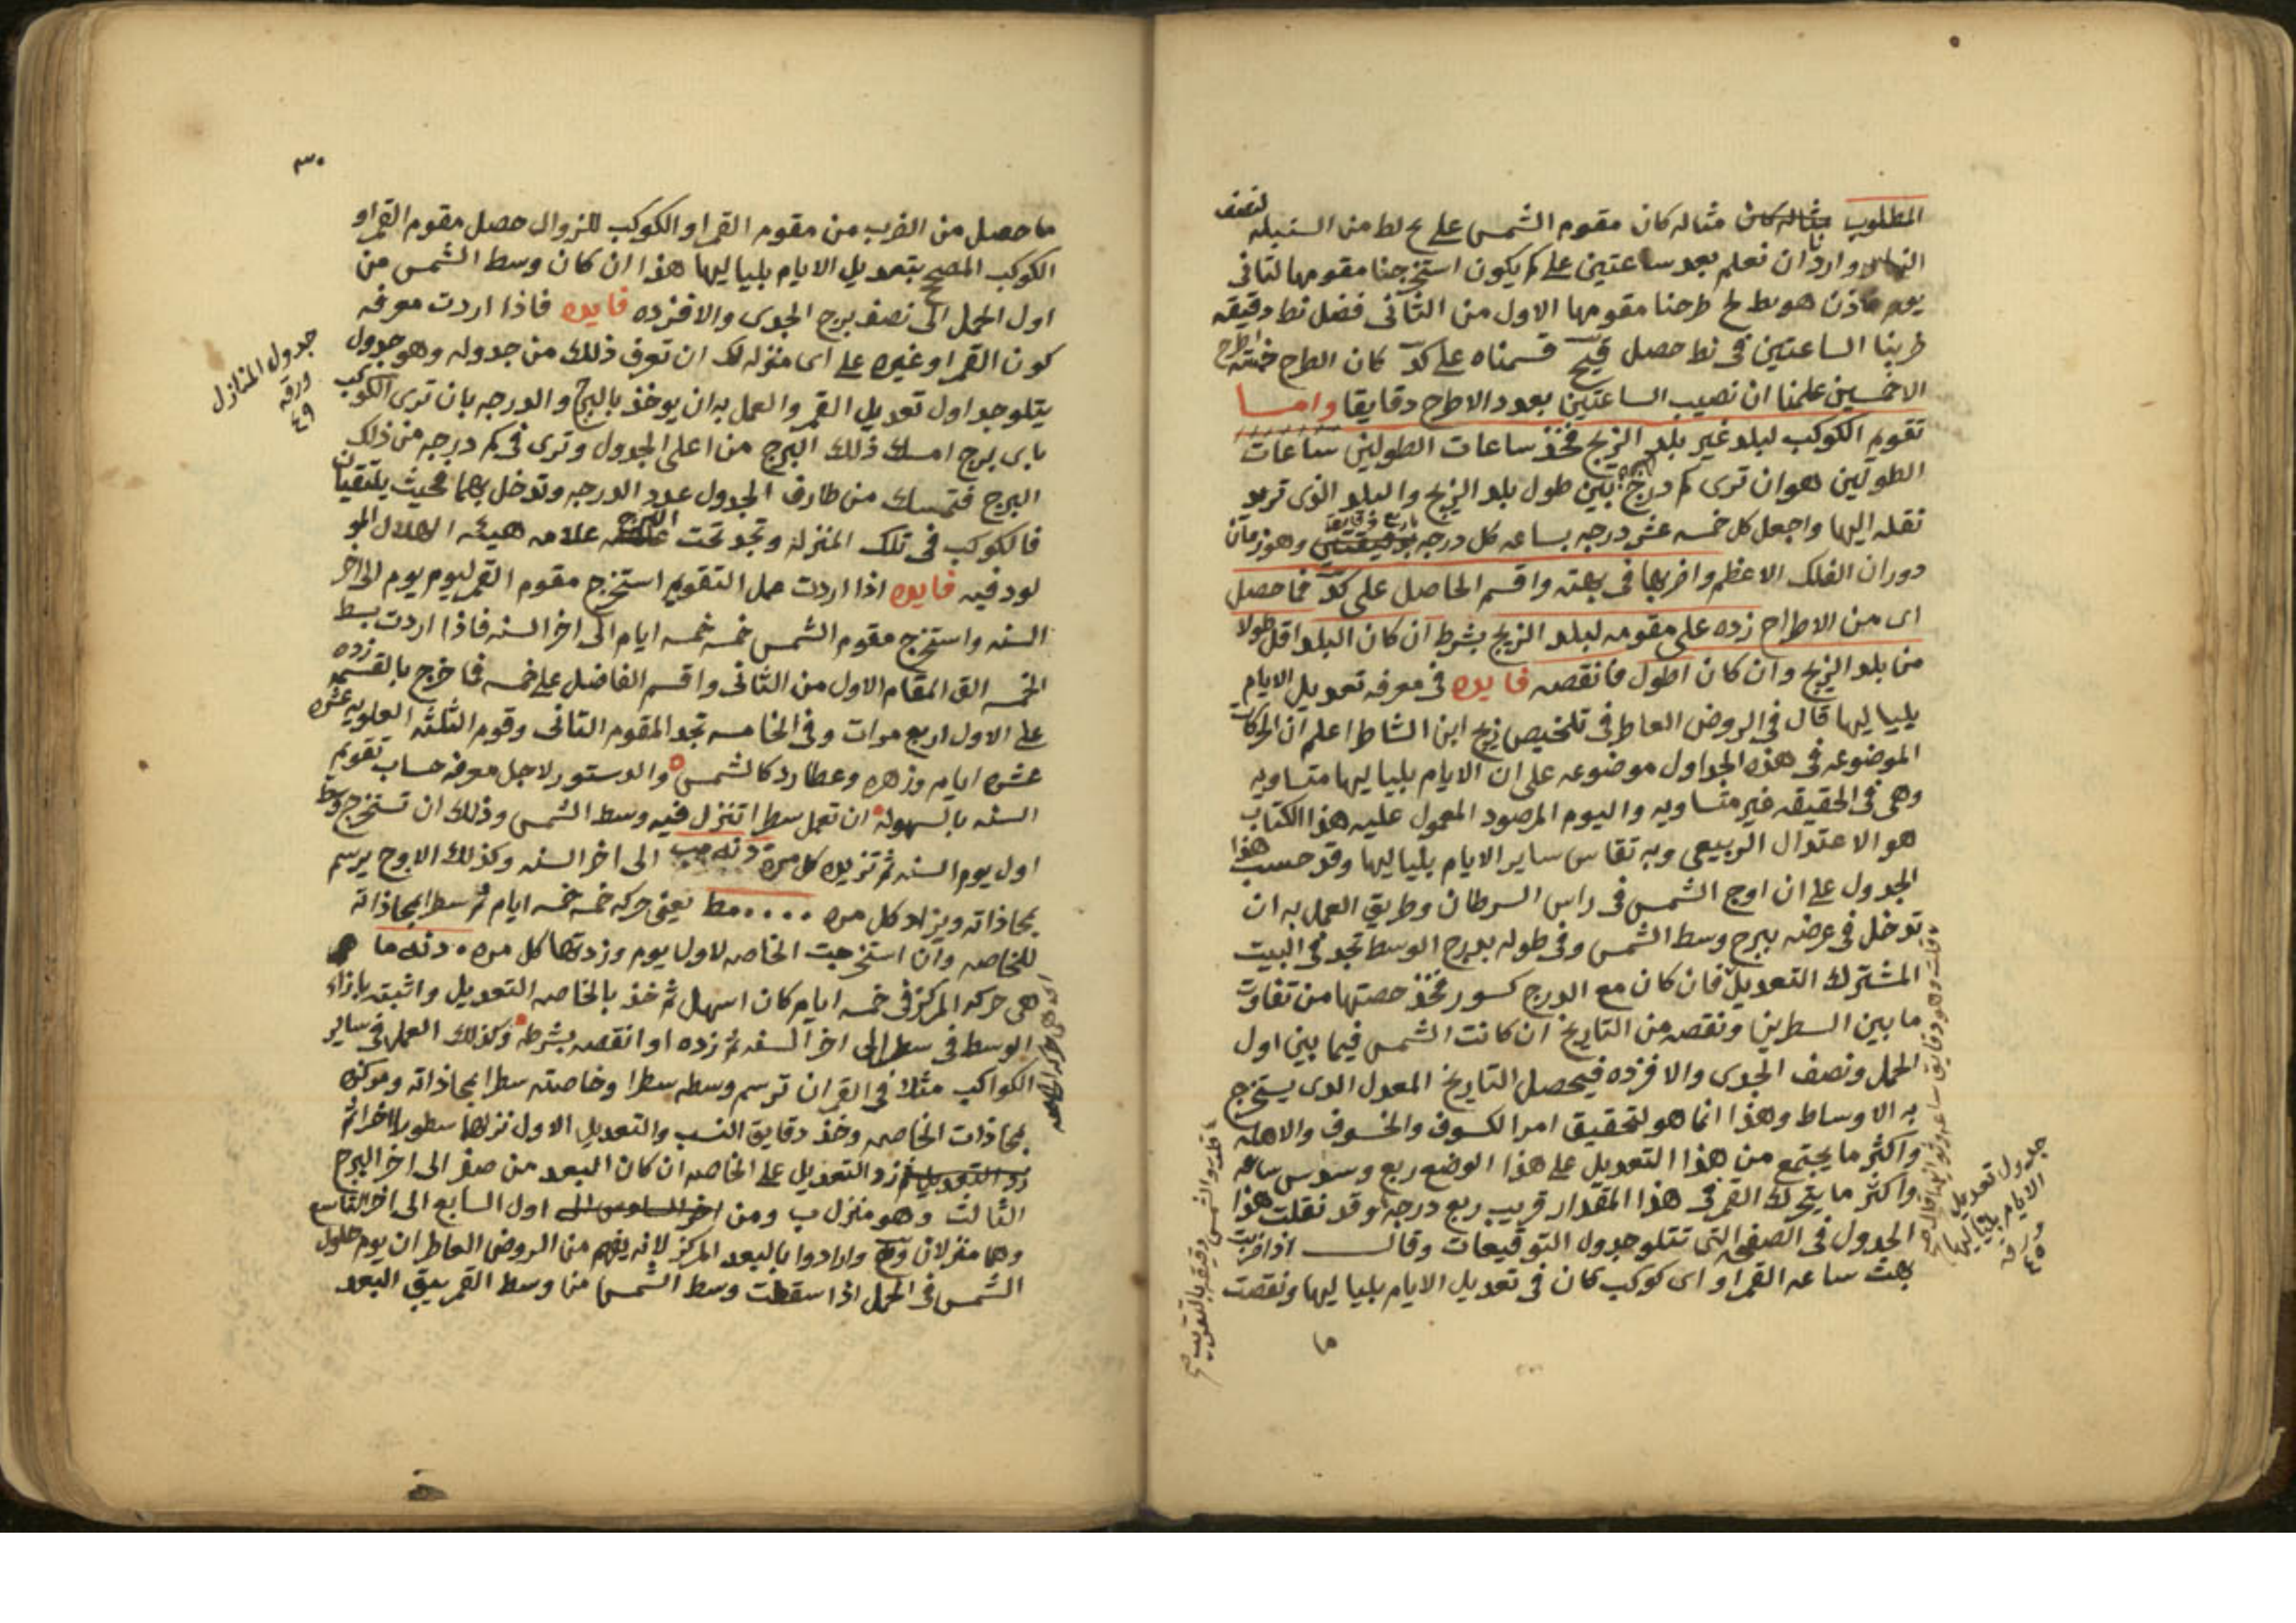 المطلوب مثاله كان مثاله كان مقوم الشمس على ح لط من السنبله لنصف
النهار واردنا ان نعلم بعد ساعتين على كم يكون استخرجنا مقومها لثانى
يوم هو يط لح طرحنا مقومها الاول من الثانى فضل نط دقيقه
ضربنا الساعتين فى نط حصل قيح قسمناه على كد كان الطرح خمسه اطرح
الا خمسين علمنا ان نصيب الساعتين بعدد الاطرح دقايقا واما
تقويم الكوكب لبلد غير بلد الزيج فخذ ساعات الطولين ساعات
الطولين هو ان ترى كم درجه بين طول بلد الزيج والبلد الذى تريد
نقله اليها واجعل كل خمسه عشر درجه بساعه كل درجه باربع دقايق وهو زمان
دوران الفلك الاعظم واضربها فى بهته واقسم الحاصل على كد فما حصل
اى من الاطراح زده على مقومه لبلد الزيج بشرط ان كان البلد اقل طولا
من بلد الزيج وان كان اطول فانقصه فايده فى معرفه تعديل الايام
بلياليها قال فى الروض العاطر فى تلخيص زيج ابن الشاطر اعلم ان الحركات
الموضوعه فى هذه الجداول موضوعه على ان الايام بلياليها متساويه
وهى فى الحقيقه غير متساويه واليوم المرصود المعمول عليه هذا الكتاب
هو الاعتدال الربيعى وبه تقاس ساير الايام بلياليها وقد حسب هذا
الجدول على ان اوج الشمس فى راس السرطان وطريق العمل به ان
تدخل فى عرضه ببرج وسط الشمس وفى طوله بدرج الوسط تجد فى البيت
المشترك التعديل فان كان مع الدرج كسور فخذ حصتها من تفاوت
ما بين السطرين ونقصه من التاريخ ان كانت الشمس فيما بين اول
الحمل ونصف الجدى والا فزده فيحصل التاريخ المعدل الدى يستخرج
به الاوساط وهذا انما هو لتحقيق امر الكسوف والخسوف والاهله
واكثر ما يجتمع من هذا التعديل على هذا الوضع ربع وسدس ساعه
واكثر ما يتحرك القمر فى هذا المقدار قريب ربع درجه وقد نقلت هذا
الجدول فى الصفحه التى تتلو جدول التوقيعات وقال اذا ضربت
بهت ساعه القمر او اى كوكب كان فى تعديل الايام بلياليها ونقصت
ما
جدول تعديل
الايام بلياليها
ورقه
٤٥
٣٠
ما حصل من الضرب من مقوم القمر او الكوكب للزوال حصل مقوم القمر او
الكوكب المصحح بتعديل الايام بلياليها هذا ان كان وسط الشمس من
اول الحمل الى نصف برج الجدى والا فزده فايده فاذا اردت معرفه
كون القمر او غيره على اى منزله لك ان تعرف ذلك من جدوله وهو جدول
يتلو جداول تعديل القمر والعمل به ان يوخذ بالبرج والدرجه بان ترى الكوكب
باى برج امسك ذلك البرج من اعلى الجدول وترى فى كم درجه من ذلك
البرج فتمسك من طارف الجدول عدد الدرجه وتدخل بهما فحيث يلتقيان
فالكوكب فى تلك المنزله وتجد تحت البرج علامه هيئه الهلال المو
لود فيه فايده اذا اردت عمل التقويم استخرج مقوم القمر ليوم يوم الى اخر
السنه واستخرج مقوم الشمس خمسه خمسه ايام الى اخر السنه فاذا اردت بسط
الخمسه الق المقام الاول من الثانى واقسم الفاضل على خمسه فما خرج بالقسمه زده
على الاول اربع مرات وفى الخامسه تجد المقوم الثانى وقوم الثلثه العلويه عشره
عشره ايام وزهره وعطارد كالشمس والدستور لاجل معرفه حساب تقويم
السنه بالسهوله ان تعمل سطرا تنزل فيه وسط الشمس وذلك ان تستخرج وسط
اول يوم السنه ثم تزيده كل مره الى اخر السنه وكذلك الاوج يرسم
بمحاذاته ويزاد كل مره ٠٠٠٠ مط يعنى حركه خمسه خمسه ايام ثم سطرا بمحاذاته
للخاصه وان استخرجت الخاصه لاول يوم وزدتها كل مره
هى حركه المركز فى خمسه ايام كان اسهل ثم خذ بالخاصه التعديل واثبته بازاء
الوسط فى سطر الى اخر السنه ثم زده او انقصه بشرطه وكذلك العمل فى ساير
الكواكب مثلا فى القمر ان ترسم وسطه سطرا وخاصته سطرا بمحاذاته ومركزه
بمحاذات الخاصه وخذ دقايق النسب والتعديل الاول نزلها سطورا لاخر ثم
زد التعديل ثم زد التعديل على الخاصه ان كان البعد من صفر الى اخر البرج
الثالث وهو منزل ب ومن اخر السادس الى اول السابع الى اخر التاسع
وهما منزلان وارادوا بالبعد المركز لانه يفهم من الروض العاطر ان يوم حلول
الشمس فى الحمل اذا سقطت وسط الشمس من وسط القمر يبقى البعد
جدول المنازل
ورقه
٤٩